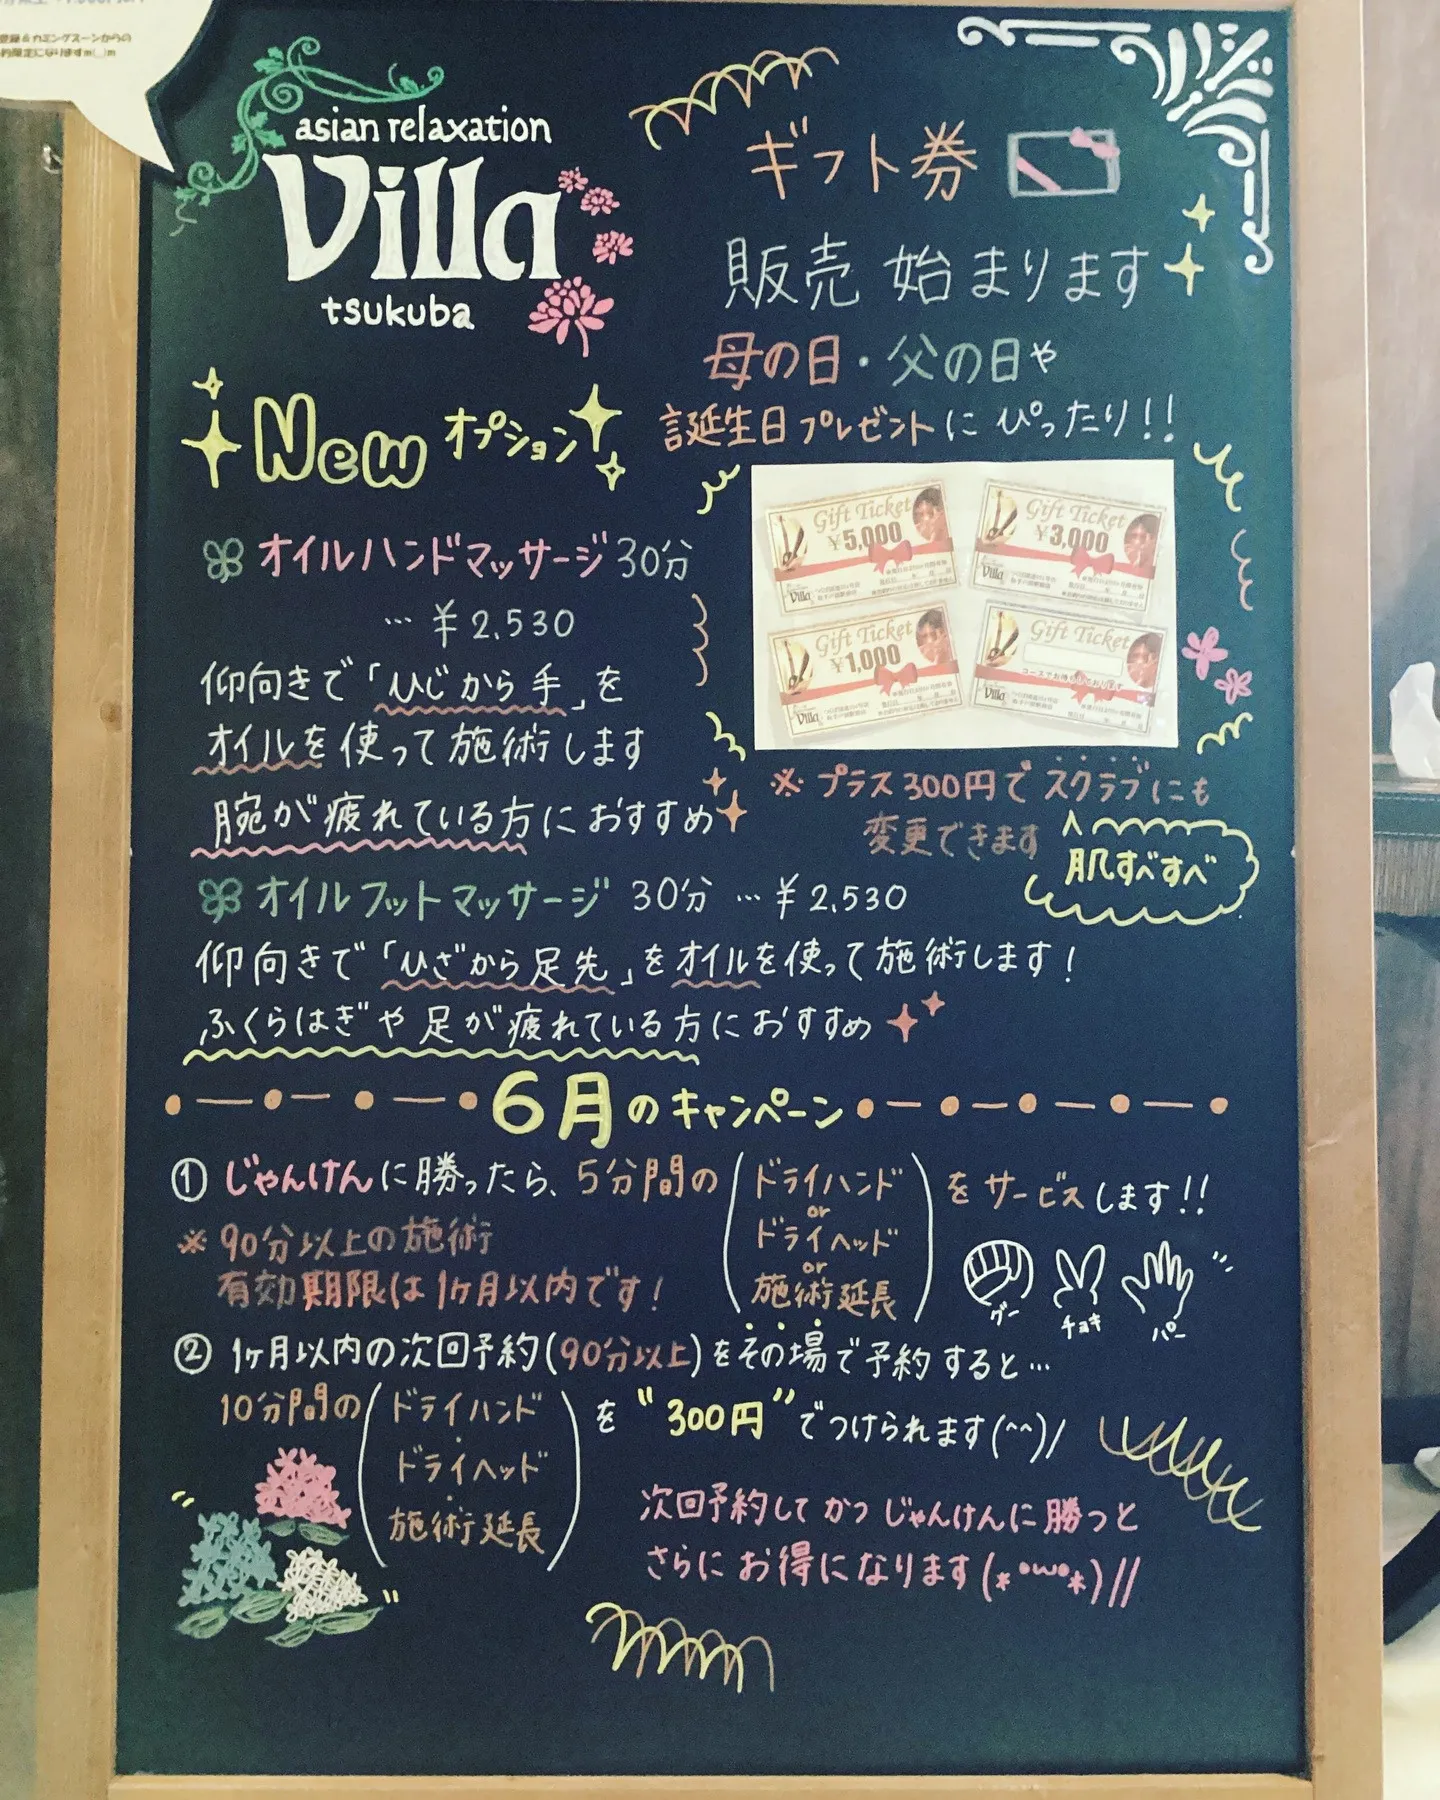 登録&カミングスーンからの
約限定になりますm(__)m
asian relaxation
Villa
tsukuba
ギフト券
販売 始まります
母の日・父の日や
誕生日プレゼントに ぴったり!!
Gift Ticket
¥5,000
Villa
Gift Ticket
¥3,000
Villa
Gift Ticket
¥1,000
Villa
Gift Ticket
Villa
※ プラス300円で スクラブにも
変更できます
肌すべすべ
New オプション
オイルハンドマッサージ 30分
… ¥2,530
仰向きで「ひじから手」を
オイルを使って施術します
腕が疲れている方におすすめ
オイルフットマッサージ 30分 … ¥2,530
仰向きで「ひざから足先」をオイルを使って施術します!
ふくらはぎや足が疲れている方におすすめ
6月のキャンペーン
① じゃんけんに勝ったら、5分間の(ドライハンド or ドライヘッド or 施術延長)をサービスします!!
※ 90分以上の施術
有効期限は1ヶ月以内です!
グー チョキ パー
② 1ヶ月以内の次回予約(90分以上)をその場で予約すると…
10分間の(ドライハンド・ドライヘッド・施術延長)を"300円"でつけられます(^^)/
次回予約して かつ じゃんけんに勝つと
さらにお得になります(*°ω°*)//